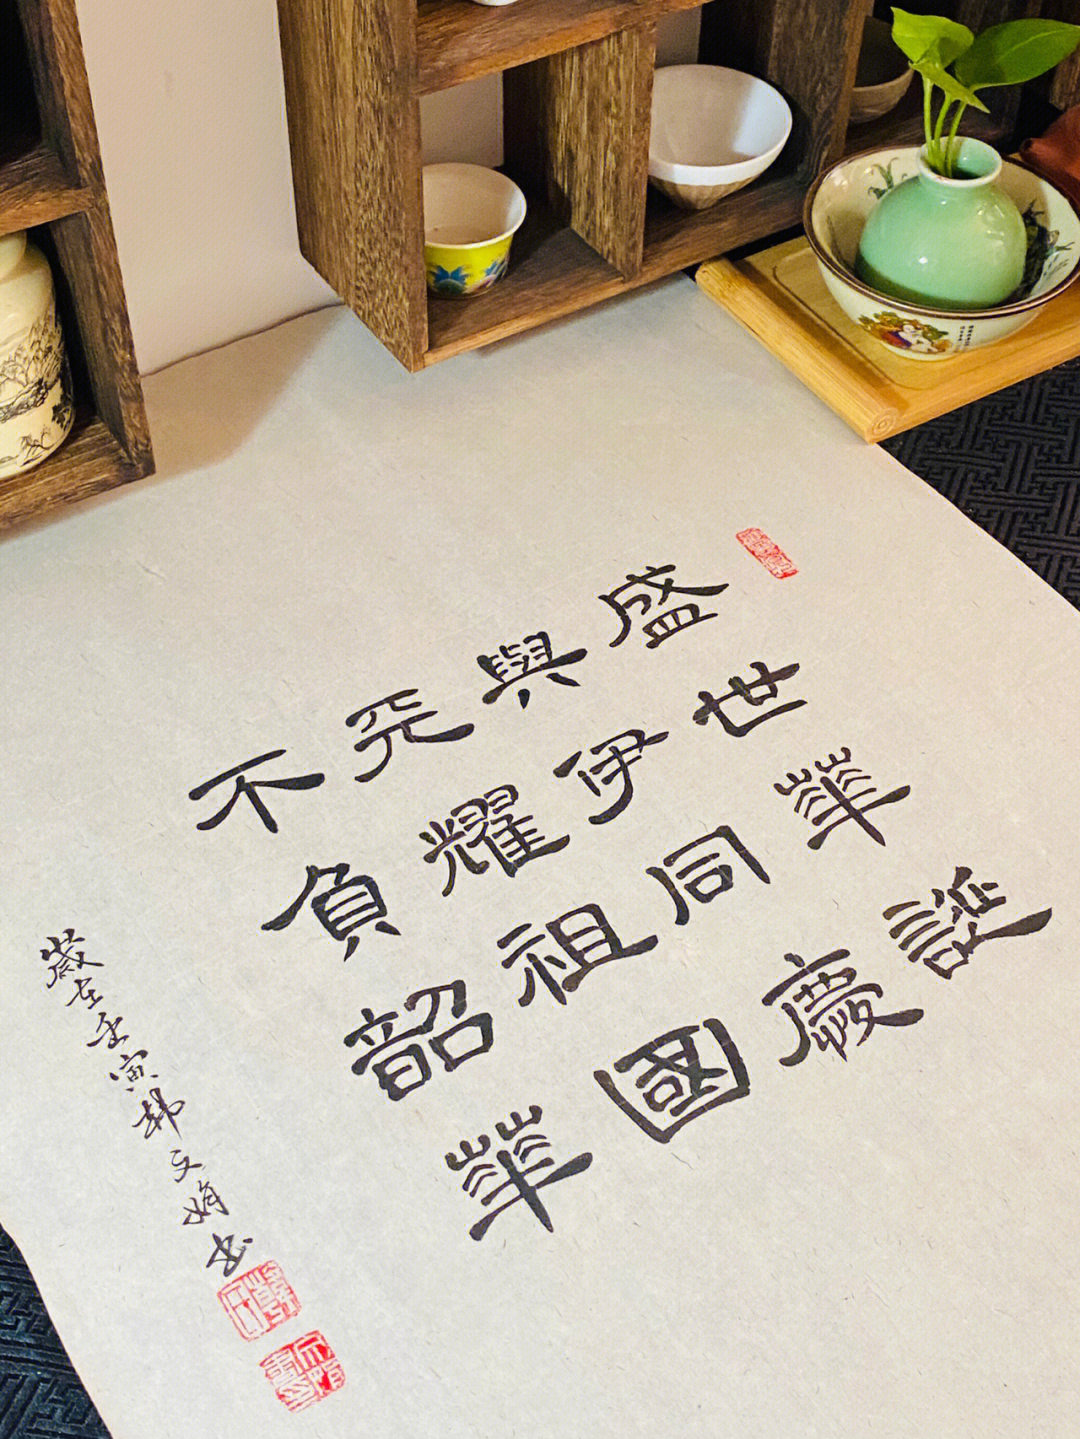 盛世華誕
與伊同慶
耀祖國
不負韶華
歲在壬寅韓文娟書